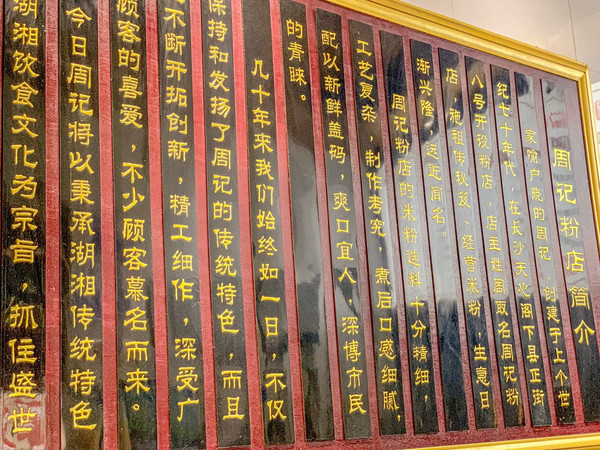 周记粉店简介
家喻户晓的周记，创建于上个世
纪七十年代，在长沙天心阁下县正街
八号开设粉店，店主姓周取名周记粉
店，施祖传秘笈、经营米粉，生意日
渐兴隆，远近闻名。
周记粉店的米粉选料十分精细，
工艺复杂，制作考究，煮后口感细腻，
配以新鲜盖码，爽口宜人，深博市民
的青睐。
几十年来我们始终如一日，不仅
保持和发扬了周记的传统特色，而且
不断开拓创新，精工细作，深受广
顾客的喜爱，不少顾客慕名而来。
今日周记将以秉承湖湘传统特色
湖湘饮食文化为宗旨，抓住盛世